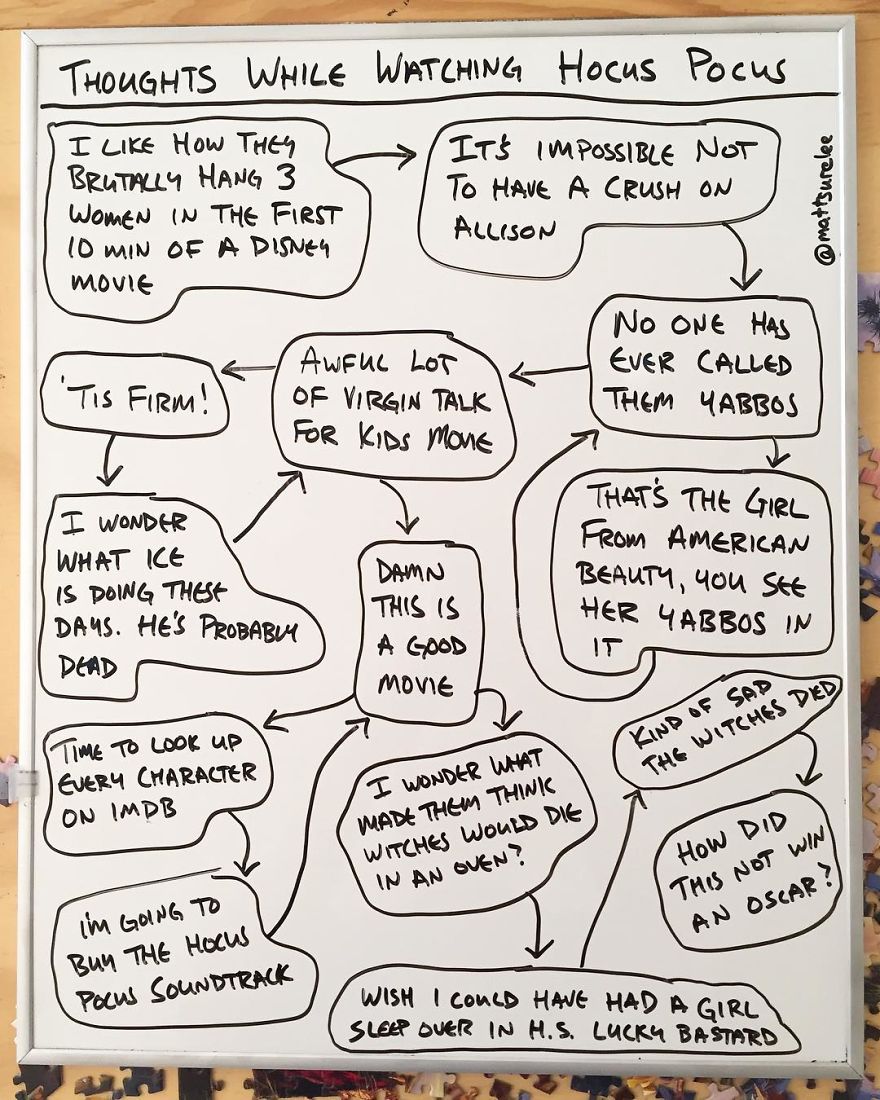 THOUGHTS WHILE WATCHING HOCUS POCUS
@mattsurelee
I LIKE HOW THEY
BRUTALLY HANG 3
WOMEN IN THE FIRST
10 MIN OF A DISNEY
MOVIE
IT'S IMPOSSIBLE NOT
TO HAVE A CRUSH ON
ALLISON
NO ONE HAS
EVER CALLED
THEM YABBOS
THAT'S THE GIRL
FROM AMERICAN
BEAUTY, YOU SEE
HER YABBOS IN
IT
AWFUL LOT
OF VIRGIN TALK
FOR KIDS MOVIE
'TIS FIRM!
I WONDER
WHAT ICE
IS DOING THESE
DAYS. HE'S PROBABLY
DEAD
DAMN
THIS IS
A GOOD
MOVIE
TIME TO LOOK UP
EVERY CHARACTER
ON IMDB
I'M GOING TO
BUY THE HOCUS
POCUS SOUNDTRACK
I WONDER WHAT
MADE THEM THINK
WITCHES WOULD DIE
IN AN OVEN?
WISH I COULD HAVE HAD A GIRL
SLEEP OVER IN H.S. LUCKY BASTARD
KIND OF SAD
THE WITCHES DIED
HOW DID
THIS NOT WIN
AN OSCAR?